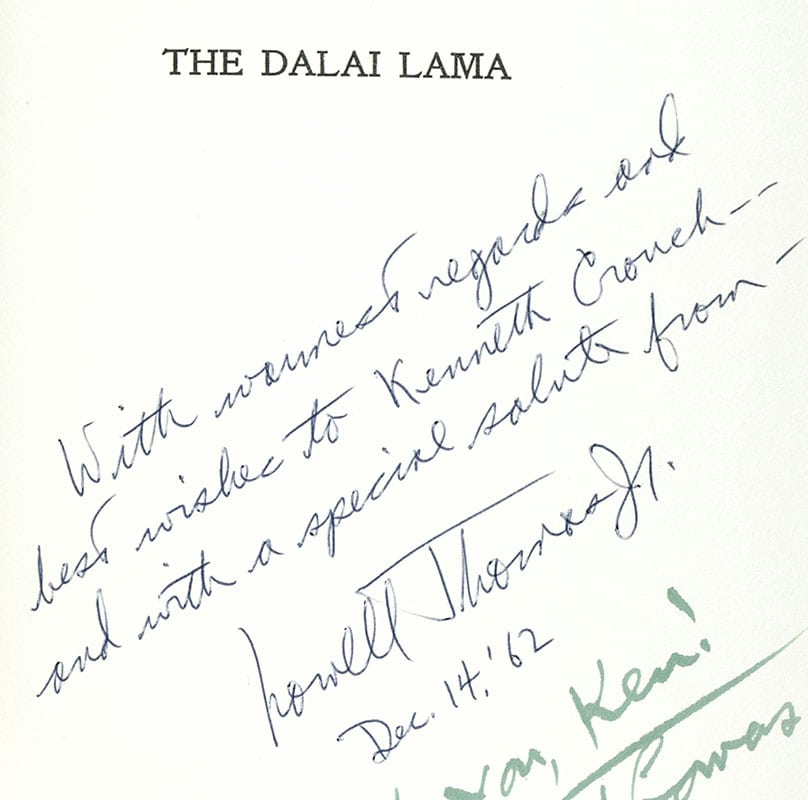 THE DALAI LAMA
With warmest regards and
best wishes to Kenneth Crouch--
and with a special salute from-
Lowell Thomas Jr.
Dec. 14, '62
you, Ken!
Thomas